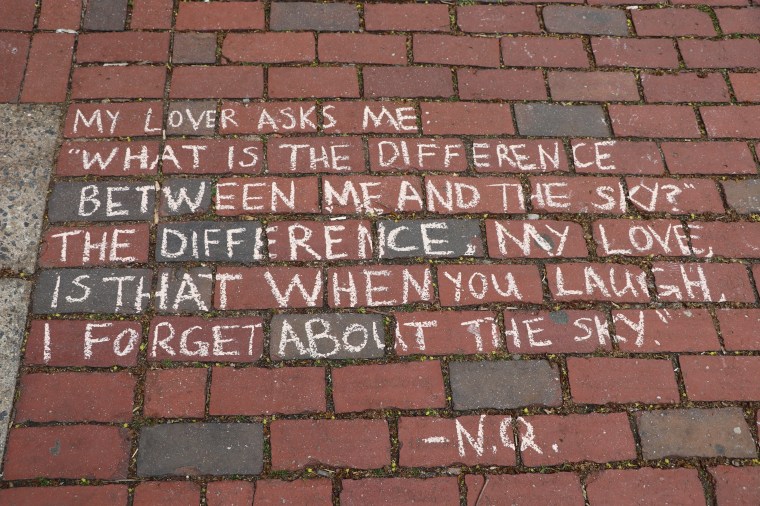 MY LOVER ASKS ME:
"WHAT IS THE DIFFERENCE
BETWEEN ME AND THE SKY?"
THE DIFFERENCE, MY LOVE,
IS THAT WHEN YOU LAUGH,
I FORGET ABOUT THE SKY."
-N.Q.